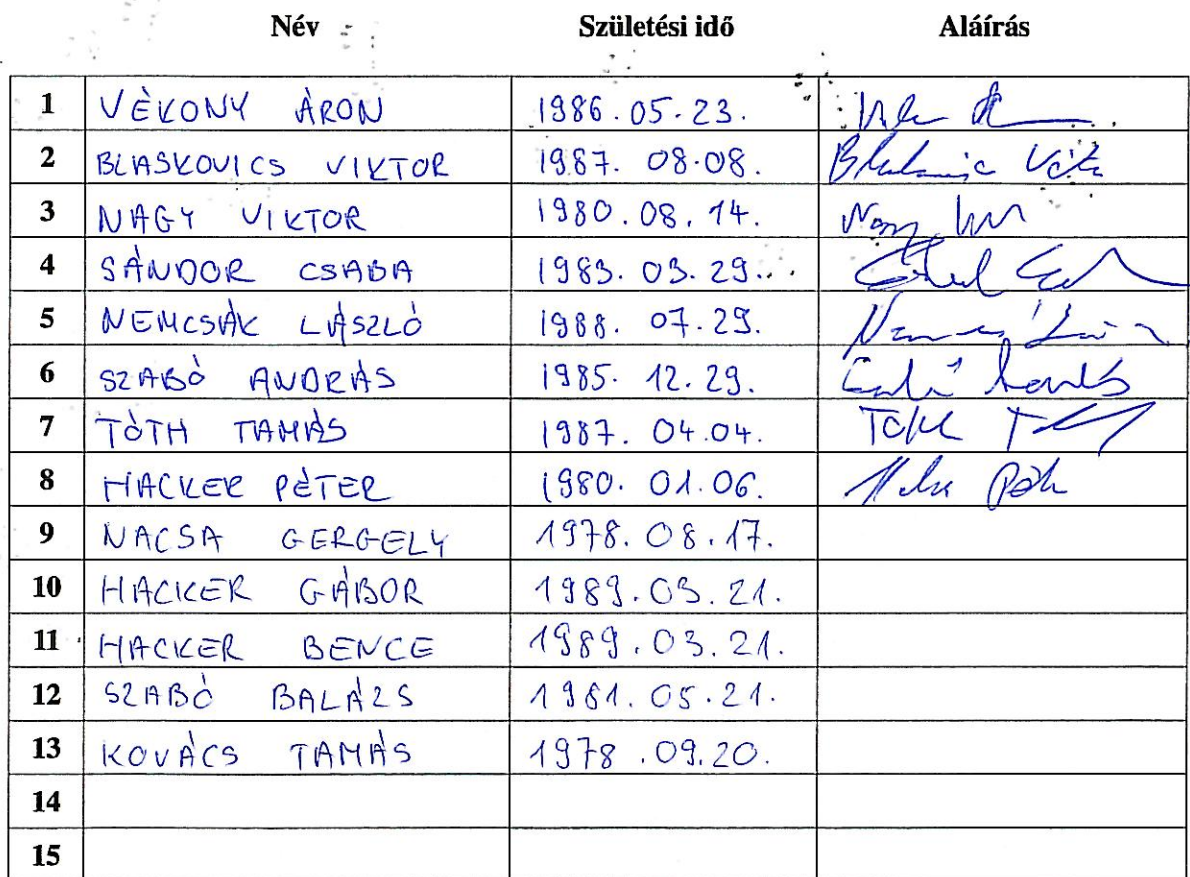 Név Születési idő Aláírás
1 VÉKONY ÁRON 1986.05.23.
2 BLASKOVICS VIKTOR 1987.08.08.
3 NAGY VIKTOR 1980.08.14.
4 SÁNDOR CSABA 1983.03.29.
5 NEMCSÁK LÁSZLÓ 1988.07.29.
6 SZABÓ ANDRÁS 1985.12.29.
7 TÓTH TAMÁS 1987.04.04.
8 HACKER PÉTER 1980.01.06.
9 NACSA GERGELY 1978.08.17.
10 HACKER GÁBOR 1989.03.21.
11 HACKER BENCE 1989.03.21.
12 SZABÓ BALÁZS 1981.05.21.
13 KOVÁCS TAMÁS 1978.09.20.
14
15